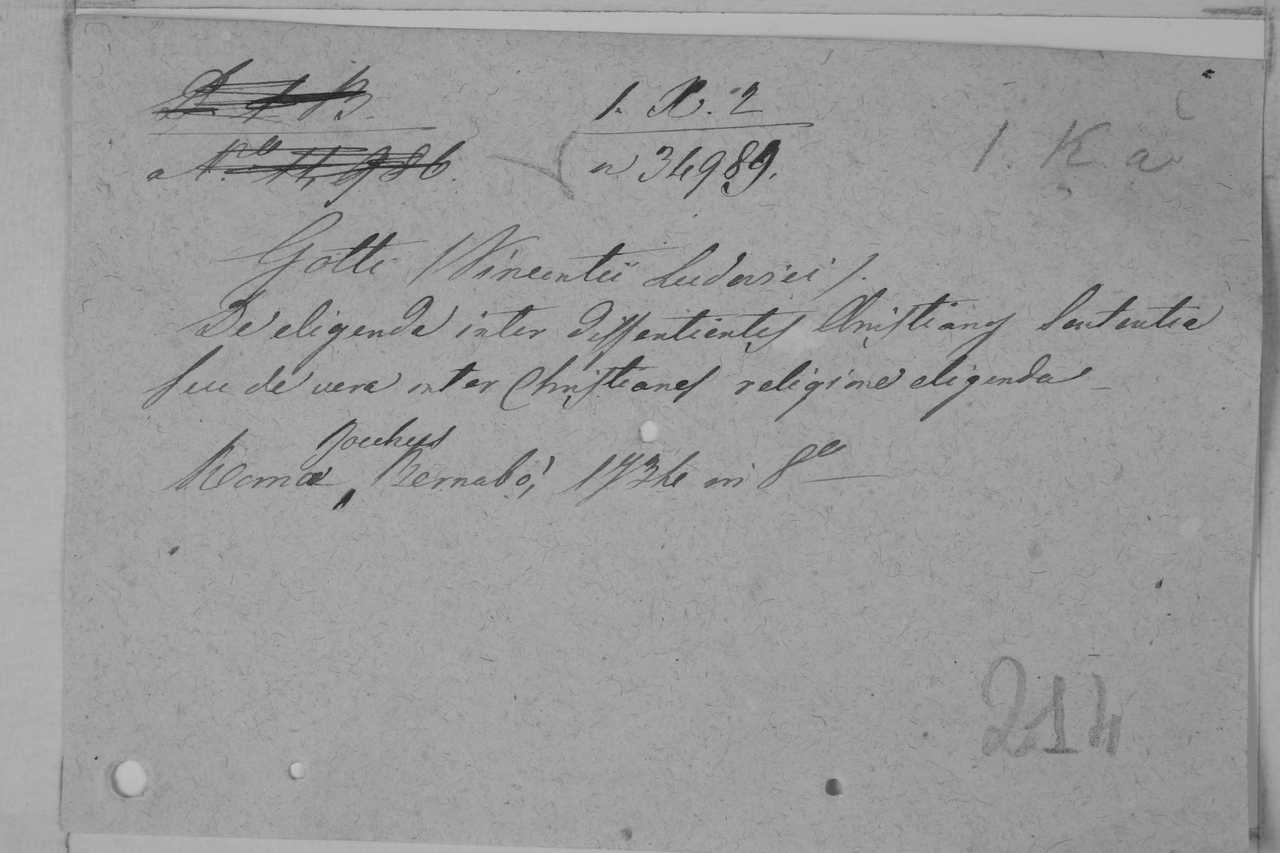 1. X. 2
1. K. a
n 34989.
Gotti (Vincentii Ludovici).
De eligenda inter dissentientes Christianos Sententia
seu de vera inter Christianos religione eligenda
Rochus
Romæ, Bernabò, 1734 in 8º
214